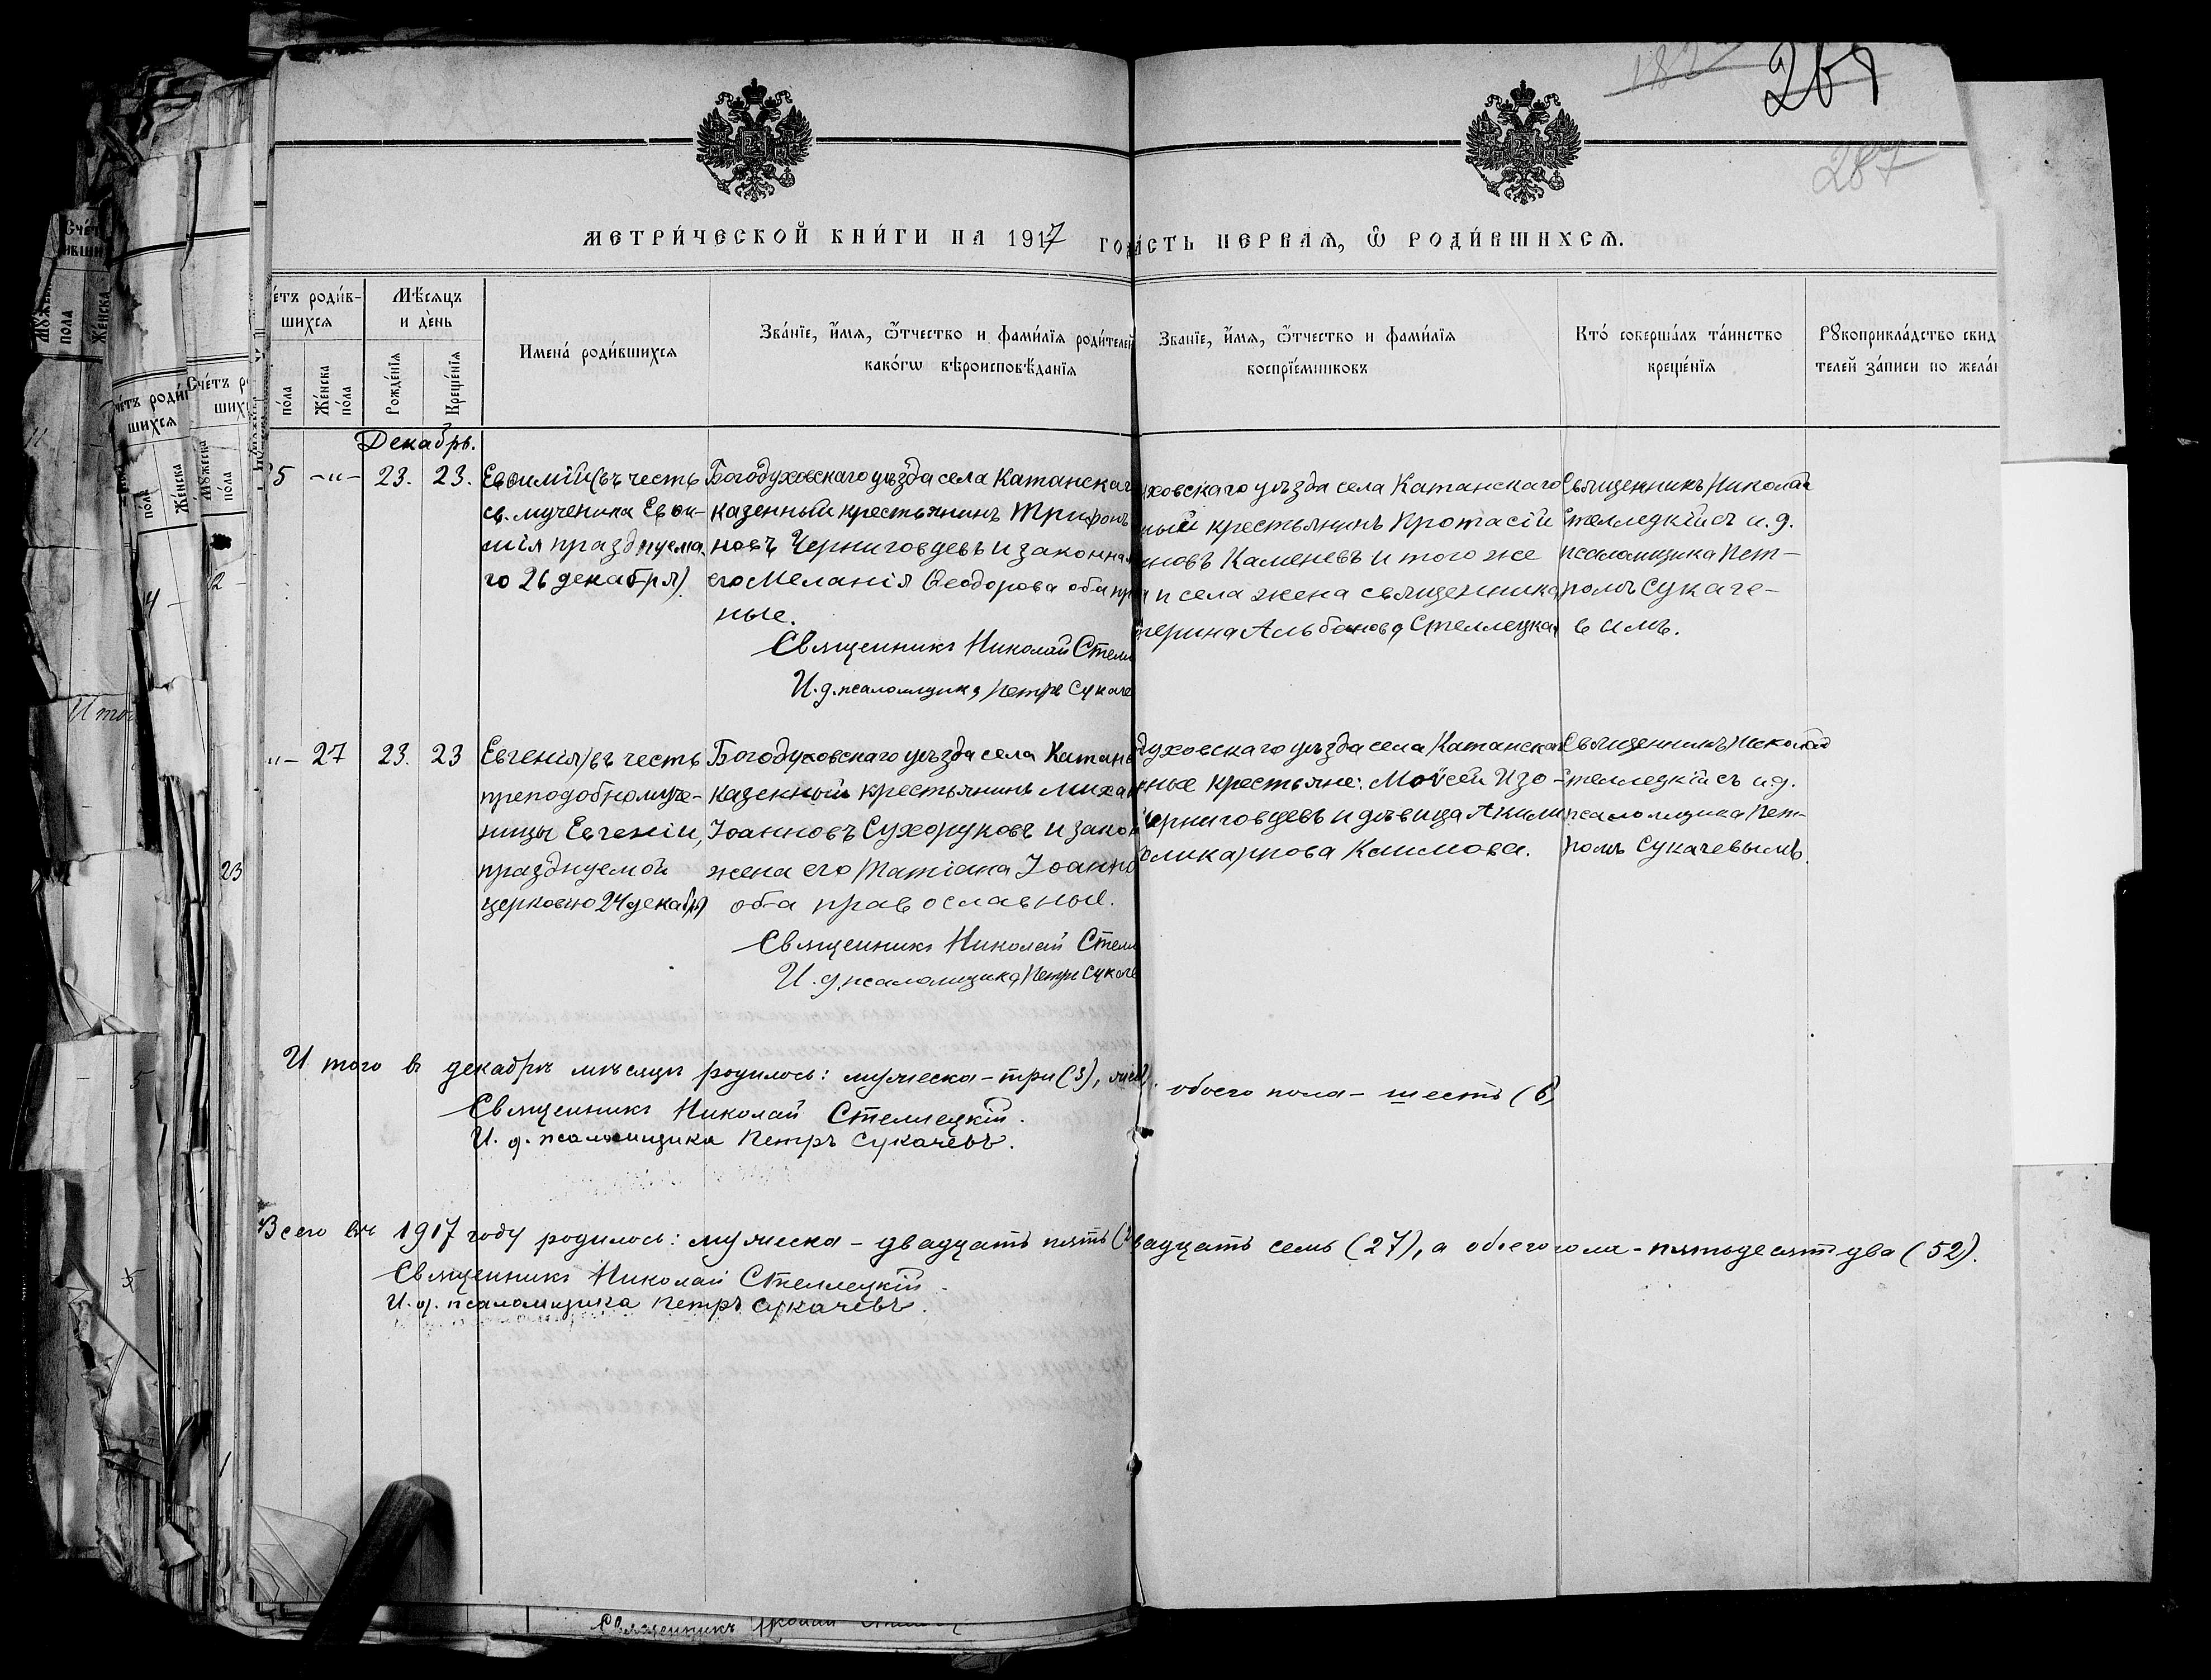 267
287
МЕТРИ́ЧЕСКОЙ КНИ́ГИ НА 1917 ГОД
А́СТЬ ПЕРВАѦ, Ѡ҆ РОДИ́ВШИХСѦ.
е́тъ роди́в-
шихсѧ
по́ла
Же́нска
по́ла
Мѣ́сѧцъ
и де́нь
Рожде́нїѧ
Креще́нїѧ
Имена́ роди́вшихсѧ
Зва́нїе, и́мѧ, ѻ҆́тчество и фами́лїѧ роди́телей
како́гѡ вѣроисповѣ́данїѧ
Зва́нїе, и́мѧ, ѻ҆́тчество и фами́лїѧ
воспрїе́мниковъ
Кто́ соверша́лъ та́инство
креще́нїѧ
Рꙋкоприкла́дство свид
телей за́писи по жела́н
Декабрь.
5 -"- 23. 23.
Евѳимій (въ честь
св. мученика Евѳи-
мія празднуема
го 26 декабря)
Богодуховскаго уѣзда села Катанскаг
казенный крестьянинъ Трифонъ
новъ Черниговцевъ и законная
его Меланія Ѳеодорова оба пр
ные.
Священникъ Николай Стелл
И. д. псаломщика Петръ Сукаче
уховскаго уѣзда села Катанскаго
ный крестьянинъ Протасій
новъ Каменевъ и того же
и села жена священника
терина Альбанова Стеллецкая
Священникъ Николай
Стеллецкій съ и. д.
псаломщика Пет-
ромъ Сукаче-
вимъ.
"- 27 23. 23
Евгенія (въ честь
преподобномуче-
ницы Евгеніи,
празднуемой
церковію 24 декабр)
Богодуховскаго уѣзда села Катанс
казенный крестьянинъ Миха
Іоанновъ Сухоруковъ и закон
жена его Татіана Іоанно
оба православные.
Священникъ Николай Стелл
И. д. псаломщика Петръ Сукаче
духовскаго уѣзда села Катанска
ные крестьяне: Моѵсей Изо-
Черниговцевъ и дѣвица Акили
оликарпова Климова.
Священникъ Николай
Стеллецкій съ и. д.
псаломщика Пет-
ромъ Сукачевымъ.
И того въ декабрѣ мѣсяцѣ родилось: мужеска - три (3),
обоего пола - шесть (6)
Священникъ Николай Стеллецкій.
И. д. псаломщика Петръ Сукачевъ.
Всего въ 1917 году родилось: мужеска - двадцать пять (2
вадцать семь (27), а обоего пола - пятьдесят два (52).
Священникъ Николай Стеллецкій
И. д. псаломщика Петръ Сукачевъ.
Священникъ